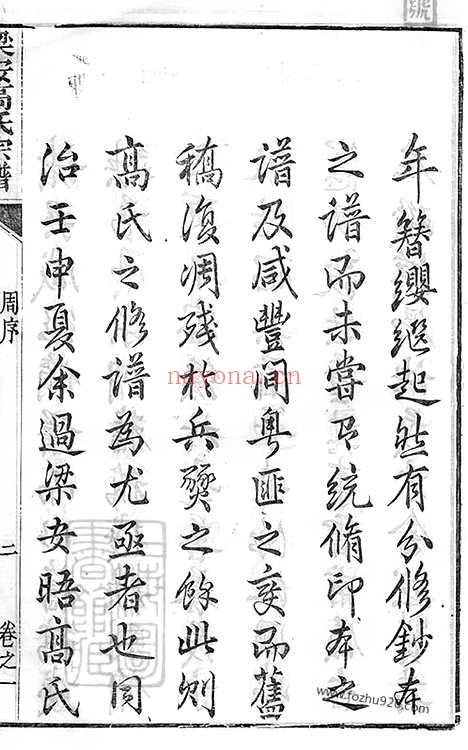 年簪纓繼起然有分修鈔本
之譜而未嘗有統脩印本之
譜及咸豐間粵匪之變而舊
稿復凋殘於兵燹之餘此則
髙氏之修譜為尤亟者也同
治壬申夏余過梁安晤髙氏
梁安高氏宗譜
周序
二
卷之一
nayona.cn
www.fozhu920.com